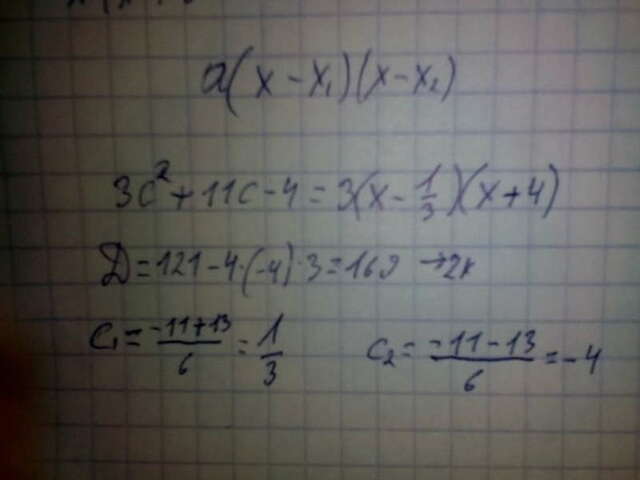 a(x-x₁)(x-x₂)
3c²+11c-4=3(x-1/3)(x+4)
D=121-4·(-4)·3=169 →2к
c₁=(-11+13)/6=1/3
c₂=(-11-13)/6=-4